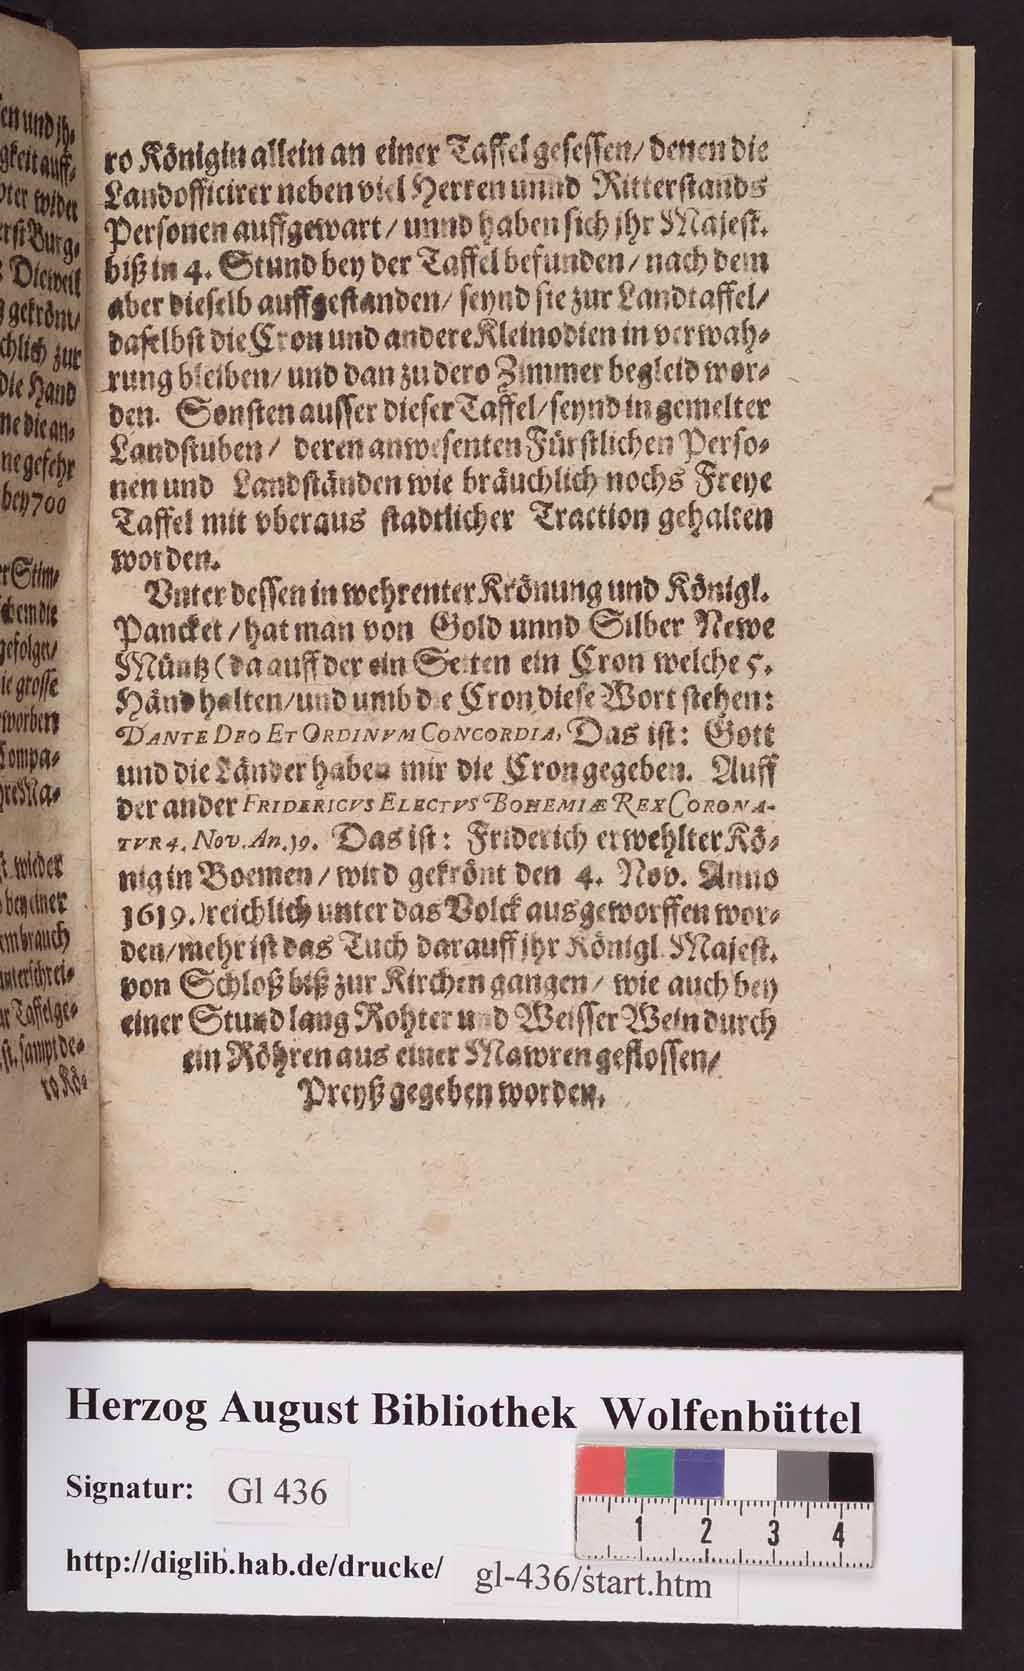 ro Königin allein an einer Taffel gesessen/ denen die
Landofficirer neben viel Herren unnd Ritterstands
Personen auffgewart/ unnd haben sich jhr Majest.
biß in 4. Stund bey der Taffel befunden/ nach dem
aber dieselb auffgestanden/ seynd sie zur Landtaffel/
daselbst die Cron und andere Kleinodien in verwah-
rung bleiben/ und dan zu dero Zimmer begleid wor-
den. Sonsten ausser dieser Taffel/ seynd in gemelter
Landstuben/ deren anwesenten Fürstlichen Perso-
nen und Landständen wie bräuchlich nochs Freye
Taffel mit vberaus stadtlicher Traction gehalten
worden.
Vnter dessen in wehrenter Krönung und Königl.
Pancket/ hat man von Gold unnd Silber Newe
Müntz (da auff der ein Seiten ein Cron welche 5.
Händ halten/ und umb die Cron diese Wort stehen:
DANTE DEO ET ORDINVM CONCORDIA, Das ist: Gott
und die Länder haben mir die Cron gegeben. Auff
der ander FRIDERICVS ELECTVS BOHEMIÆ REX CORONA-
TVR 4. Nov. An. 19. Das ist: Friderich erwehlter Kö-
nig in Boemen/ wird gekrönt den 4. Nov. Anno
1619.) reichlich unter das Volck ausgeworffen wor-
den/ mehr ist das Tuch darauff jhr Königl. Majest.
von Schloß biß zur Kirchen gangen/ wie auch bey
einer Stund lang Rohter und Weisser Wein durch
ein Röhren aus einer Mawren geflossen/
Preyß gegeben worden.
Herzog August Bibliothek Wolfenbüttel
Signatur: Gl 436
http://diglib.hab.de/drucke/ gl-436/start.htm
1 2 3 4